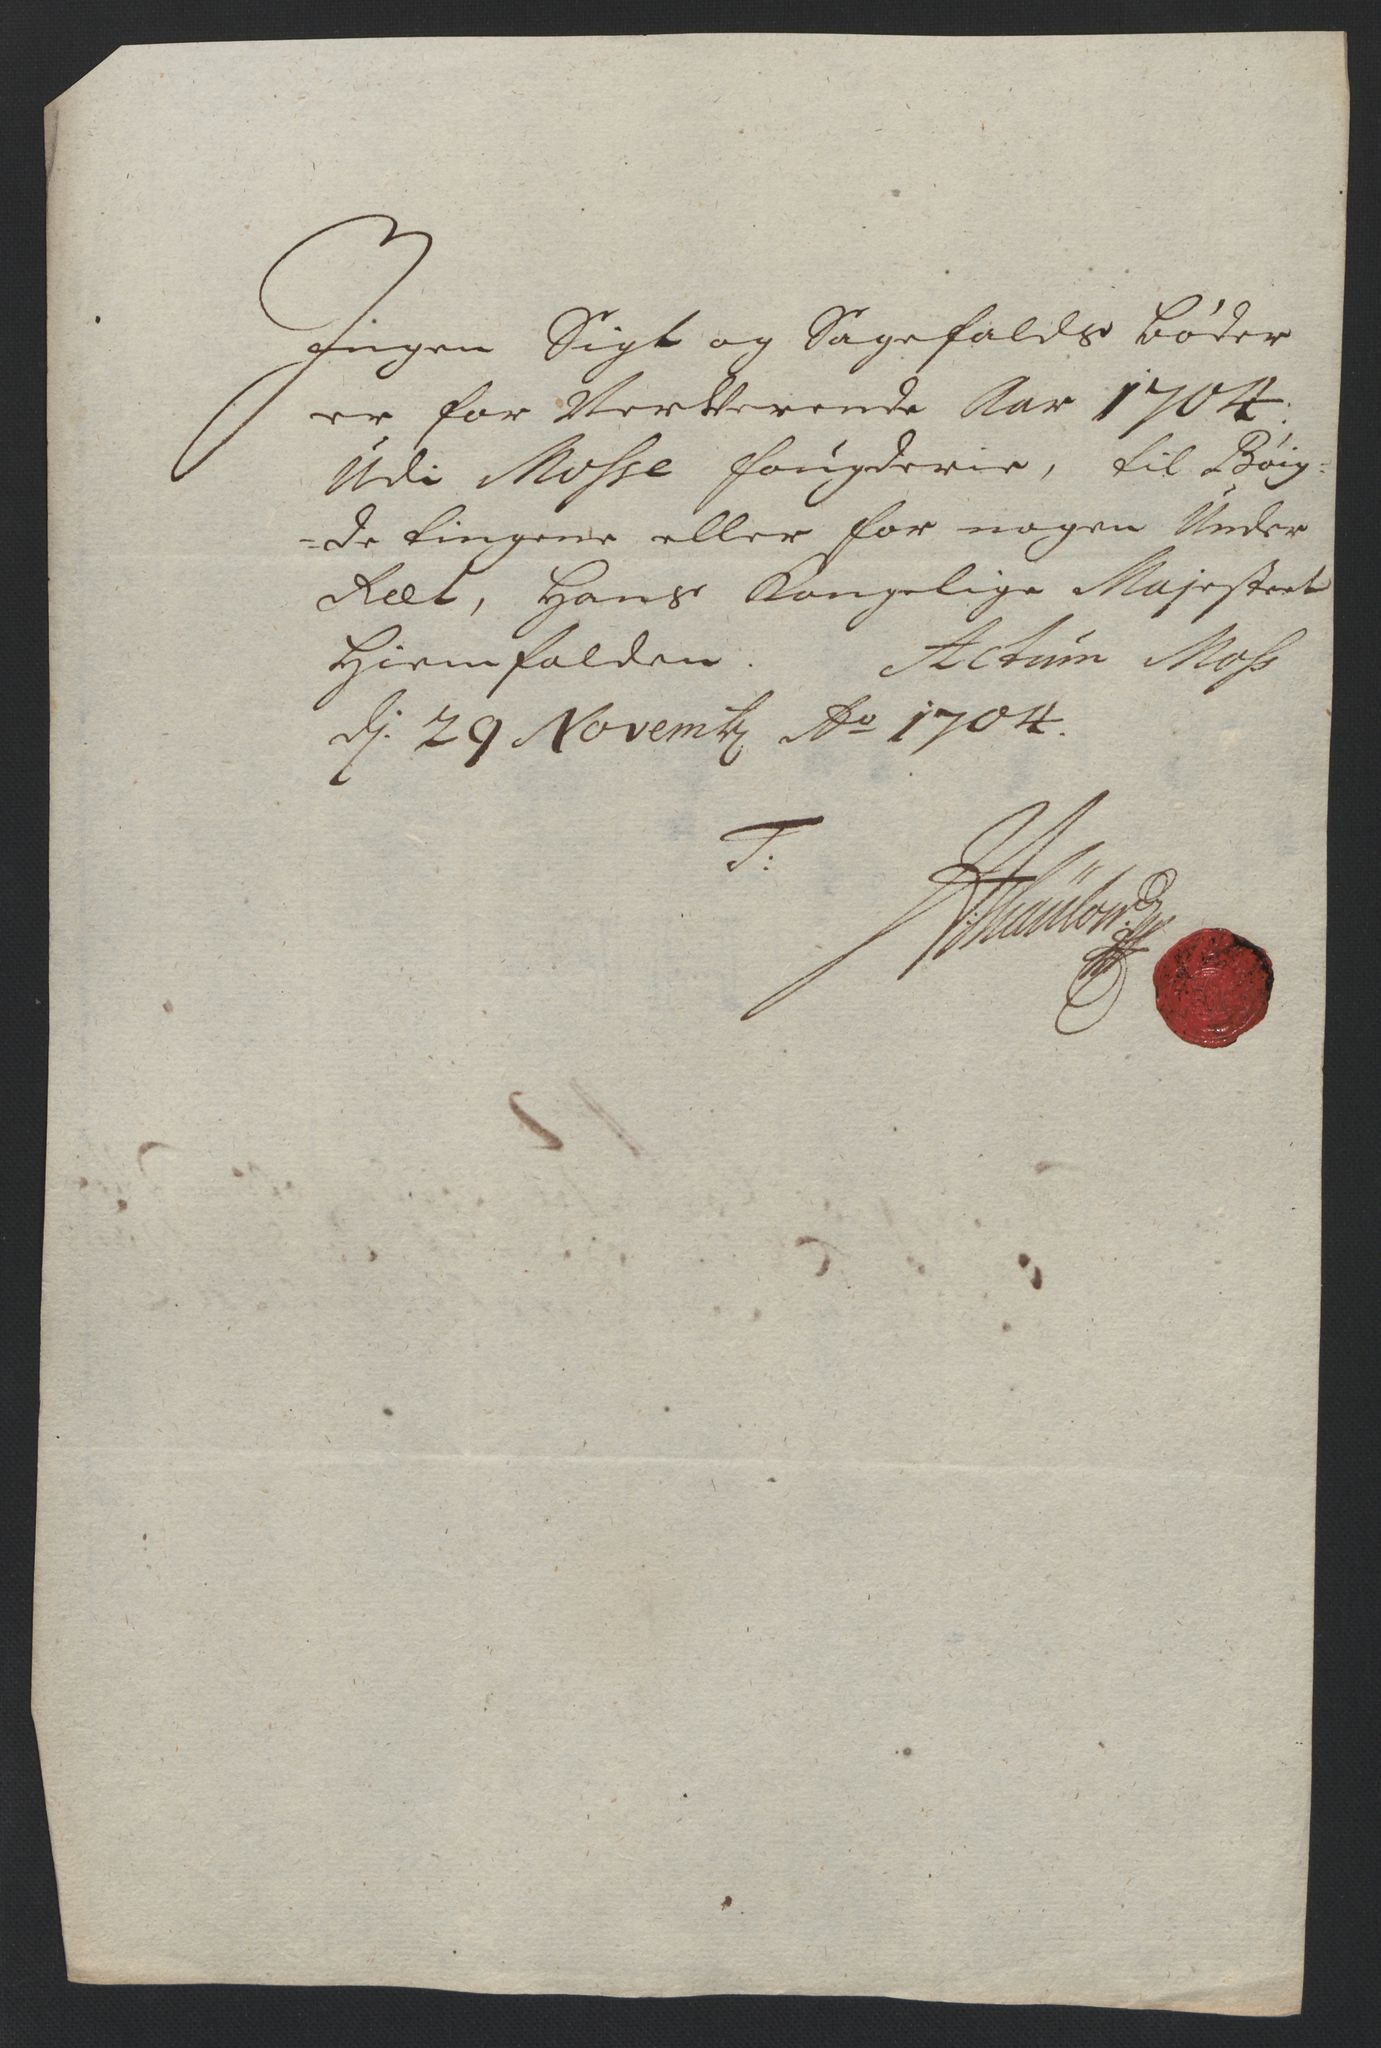 Ingen Sigt og Sagefalds bøder
er for Verværende Aar 1704.
Udi Mosse fougderie, til Bøig=
=de tingene eller for nogen Under
Ræt, Hans Kongelige Majestæt
Hiemfalden. Actum Moss
dj. 29 Novemb Ao 1704.
T: